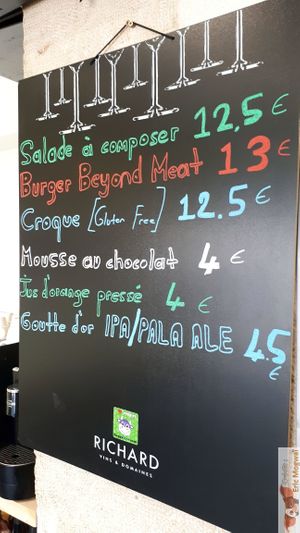 Salade à composer 12,5 €
Burger Beyond Meat 13 €
Croque [Gluten Free] 12.5 €
Mousse au chocolat 4 €
Jus d'orange pressé 4 €
Goutte d'or IPA/PALA ALE 4.5 €
RICHARD
VINS & DOMAINES
Eric Moewel